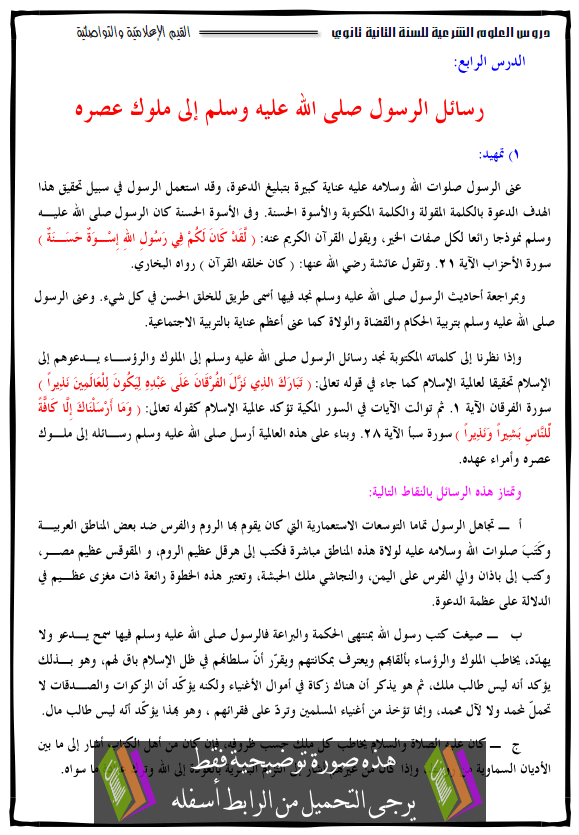 دروس العلوم الشرعية للسنة الثانية ثانوي القيم الإعلامية والتواصلية
الدرس الرابع:
رسائل الرسول صلى الله عليه وسلم إلى ملوك عصره
١) تمهيد:
عنى الرسول صلوات الله وسلامه عليه عناية كبيرة بتبليغ الدعوة، وقد استعمل الرسول في سبيل تحقيق هذا
الهدف الدعوة بالكلمة المقولة والكلمة المكتوبة والأسوة الحسنة. وفى الأسوة الحسنة كان الرسول صلى الله عليـــه
وسلم نموذجا رائعا لكل صفات الخير، ويقول القرآن الكريم عنه: ﴿ لَّقَدْ كَانَ لَكُمْ فِي رَسُولِ اللهِ إِسْــوَةٌ حَسَــنَةٌ ﴾
سورة الأحزاب الآية ٢١. وتقول عائشة رضي الله عنها: ( كان خلقه القرآن ) رواه البخاري.
وبمراجعة أحاديث الرسول صلى الله عليه وسلم نجد فيها أسمى طريق للخلق الحسن في كل شيء. وعنى الرسول
صلى الله عليه وسلم بتربية الحكام والقضاة والولاة كما عنى أعظم عناية بالتربية الاجتماعية.
وإذا نظرنا إلى كلماته المكتوبة نجد رسائل الرسول صلى الله عليه وسلم إلى الملوك والرؤساء يـــدعوهم إلى
الإسلام تحقيقا لعالمية الإسلام كما جاء في قوله تعالى: ﴿ تَبَارَكَ الذِي نَزَّلَ الفُرْقَانَ عَلَى عَبْدِهِ لِيَكُونَ لِلْعَالَمِينَ نَذِيراً ﴾
سورة الفرقان الآية ١. ثم توالت الآيات في السور المكية تؤكد عالمية الإسلام كقوله تعالى: ﴿ وَمَا أَرْسَلْنَاكَ إِلَّا كَافَّةً
لِّلنَّاسِ بَشِيراً وَنَذِيراً ﴾ سورة سبأ الآية ٢٨. وبناء على هذه العالمية أرسل صلى الله عليه وسلم رسائله إلى ملـــوك
عصره وأمراء عهده.
وتمتاز هذه الرسائل بالنقاط التالية:
أ ــ تجاهل الرسول تماما التوسعات الاستعمارية التي كان يقوم بها الروم والفرس ضد بعض المناطق العربيـــة
وكَتَبَ صلوات الله وسلامه عليه لولاة هذه المناطق مباشرة فكتب إلى هرقل عظيم الروم، و المقوقس عظيم مصـــر،
وكتب إلى باذان والي الفرس على اليمن، والنجاشي ملك الحبشة، وتعتبر هذه الخطوة رائعة ذات مغزى عظـــيم في
الدلالة على عظمة الدعوة.
ب ــ صيغت كتب رسول الله بمنتهى الحكمة والبراعة فالرسول صلى الله عليه وسلم فيها سمح يـــدعو ولا
يهدّد، يخاطب الملوك والرؤساء بألقابهم ويعترف بمكانتهم ويقرّر أنّ سلطانهم في ظل الإسلام باق لهم، وهو بـــذلك
يؤكد أنه ليس طالب ملك، ثم هو يذكر أن هناك زكاة في أموال الأغنياء ولكنه يؤكّد أن الزكوات والصـــدقات لا
تحملّ لمحمد ولا لآل محمد، وإنما تؤخذ من أغنياء المسلمين وتردّ على فقرائهم ، وهو بهذا يؤكّد أنّه ليس طالب مال.
ج ــ كان عليه الصلاة والسلام يخاطب كل ملك حسب ظروفه، فإن كان من أهل الكتاب أشار إلى ما بين
الأديان السماوية من ، وإذا كان من غيرهم إلى الله ما سواه.
هذه صورة توضيحية فقط
يرجى التحميل من الرابط أسفله